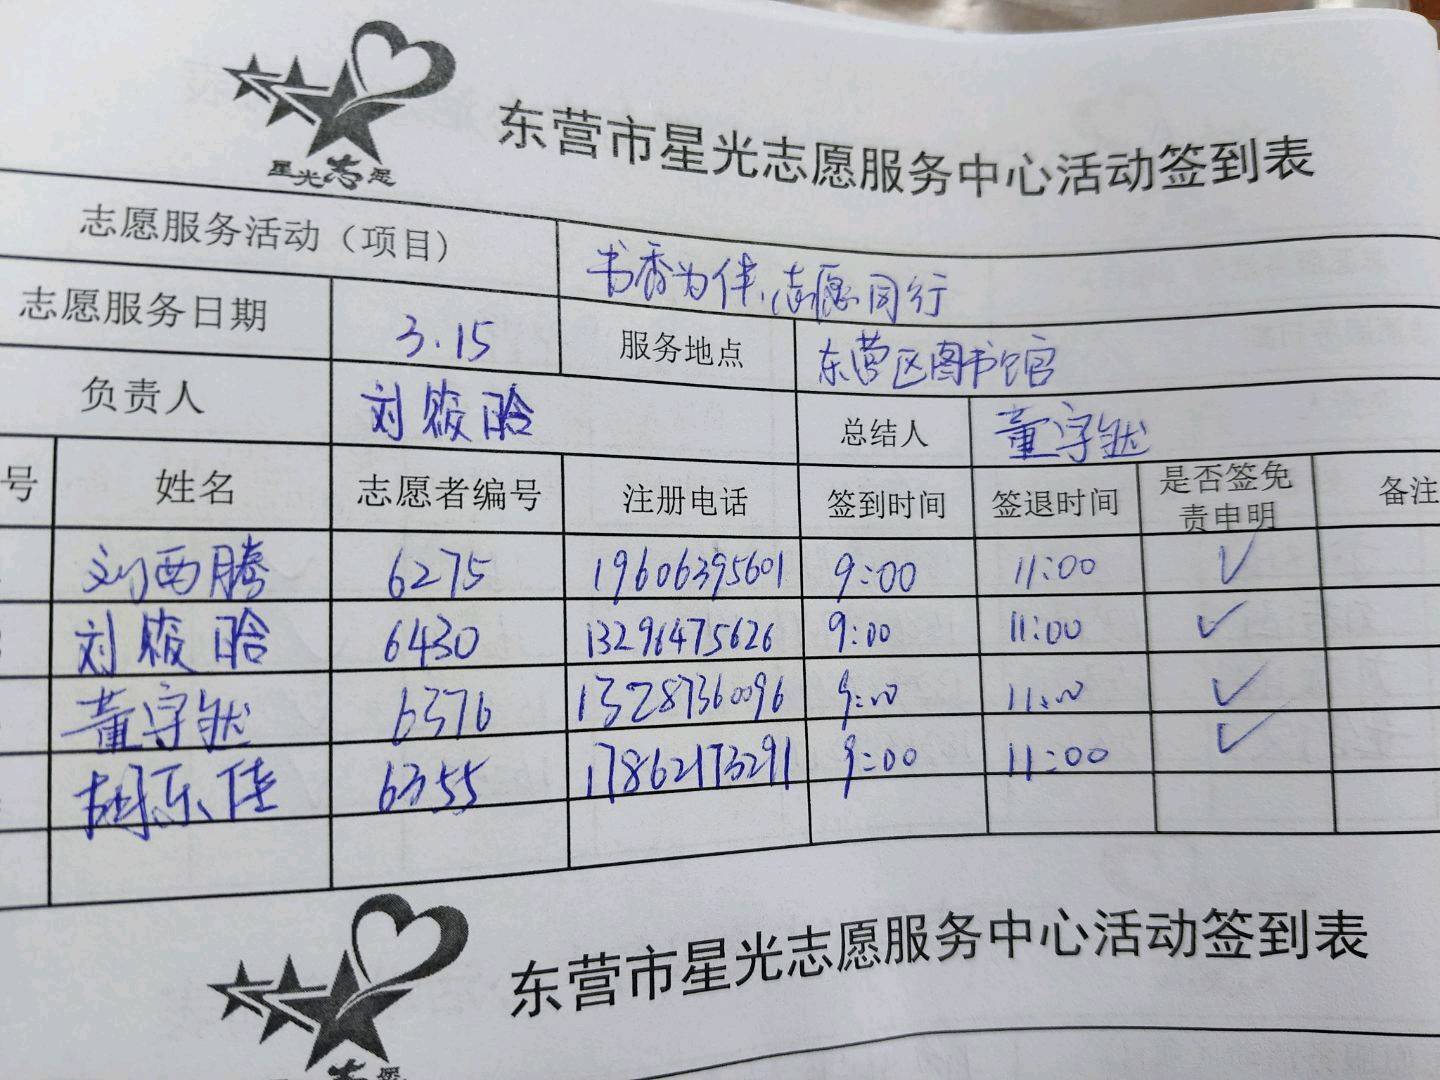 星光志愿
东营市星光志愿服务中心活动签到表
志愿服务活动（项目） 书香为伴、志愿同行
志愿服务日期 3.15 服务地点 东营区图书馆
负责人 刘筱晗 总结人 董字然
号 姓名 志愿者编号 注册电话 签到时间 签退时间 是否签免责申明 备注
刘西腾 6275 19606395601 9:00 11:00 ✓
刘筱晗 6430 13296475626 9:00 11:00 ✓
董字然 6376 13287360096 9:00 11:00 ✓
胡乐佳 6355 17862173291 9:00 11:00 ✓
东营市星光志愿服务中心活动签到表